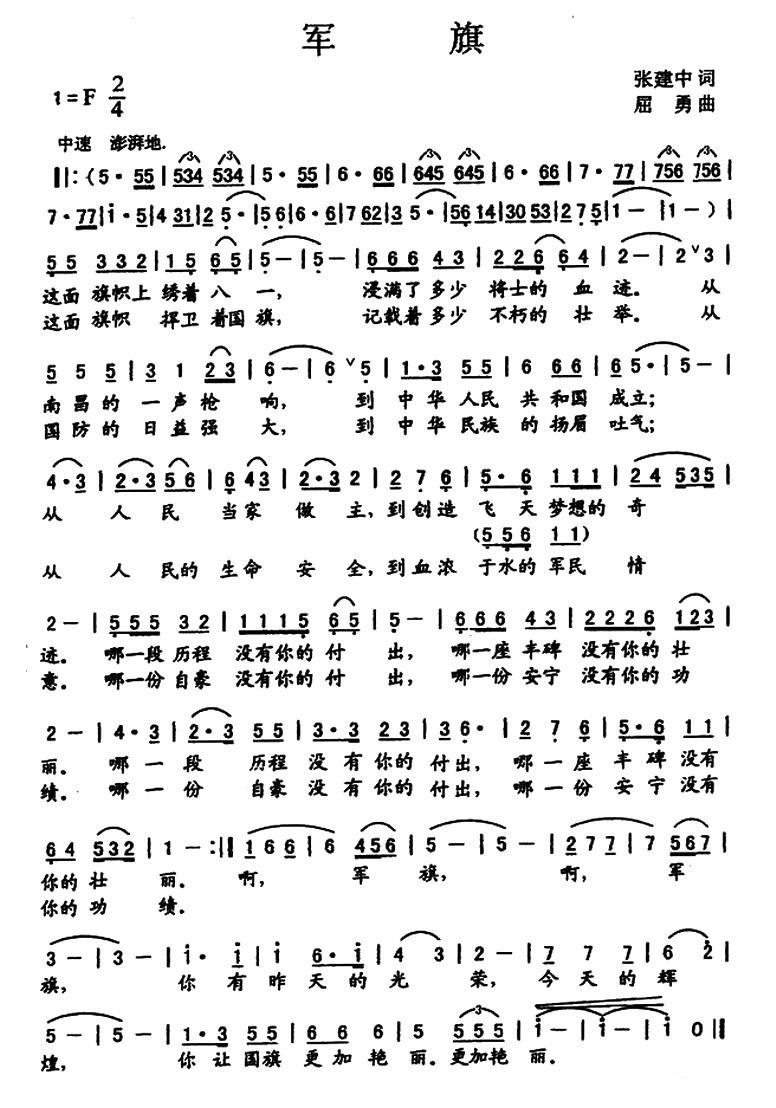 军 旗
1=F 2/4
张建中 词
屈 勇 曲
中速 澎湃地.
‖:(5· 55|534 534|5· 55|5· 55|6· 66|645 645|6· 66|7· 77|756 756|
7·77|i·5|4 31|2 5·|5 6|6·6|7 62|3 5·|56 14|30 53|2 7 5|1 －|1 －)|
5 5 3 3 2|1 5 6 5|5 －|5 －|6 6 6 4 3|2 2 6 6 4|2 －|2 ˅3|
这面 旗帜上 绣着 八 一, 浸满了 多少 将士的 血 迹. 从
这面 旗帜 捍卫 着国 旗, 记载着 多少 不朽的 壮 举. 从
5 5 5|3 1 2 3|6 －|6 ˅5|1·3 5 5|6 6 6 6|6 5·|5 －|
南 昌 的 一 声 枪 响, 到 中 华 人民 共 和国 成立;
国 防 的 日 益 强 大, 到 中 华 民族 的 扬眉 吐气;
4·3|2·3 5 6|6 4 3|2·3 2|2 7 6|5·6 1 1 1|2 4 5 3 5|
从 人 民 当家 做 主, 到 创造 飞 天 梦想的 奇
(5 5 6 1 1)
从 人 民的 生命 安 全, 到 血浓 于水的 军民 情
2 －|5 5 5 3 2|1 1 1 5 6 5|5 －|6 6 6 4 3|2 2 2 6 1 2 3|
迹. 哪一段 历程 没有你的 付 出, 哪一座 丰碑 没有你的 壮
意. 哪一份 自豪 没有你的 付 出, 哪一份 安宁 没有你的 功
2 －|4·3|2·3 5 5|3·3 2 3|3 6·|2 7 6|5·6 1 1|
丽. 哪 一 段 历程 没 有 你的 付出, 哪 一 座 丰 碑 没有
绩. 哪 一 份 自豪 没 有 你的 付出, 哪 一 份 安 宁 没有
6 4 5 3 2|1 －:‖1 6 6|6 4 5 6|5 －|5 －|2 7 7|7 5 6 7|
你的 壮 丽. 啊, 军 旗, 啊, 军
你的 功 绩.
3 －|3 －|i· i|i 6·i|4 3|2 －|7 7 7|6 2|
旗, 你 有 昨 天 的 光 荣, 今 天 的 辉
5 －|5 －|1·3 5 5|6 6 6 6|5 2|5 5 5 5|i －|i －|i 0‖
煌, 你 让 国旗 更 加 艳 丽. 更加艳 丽.